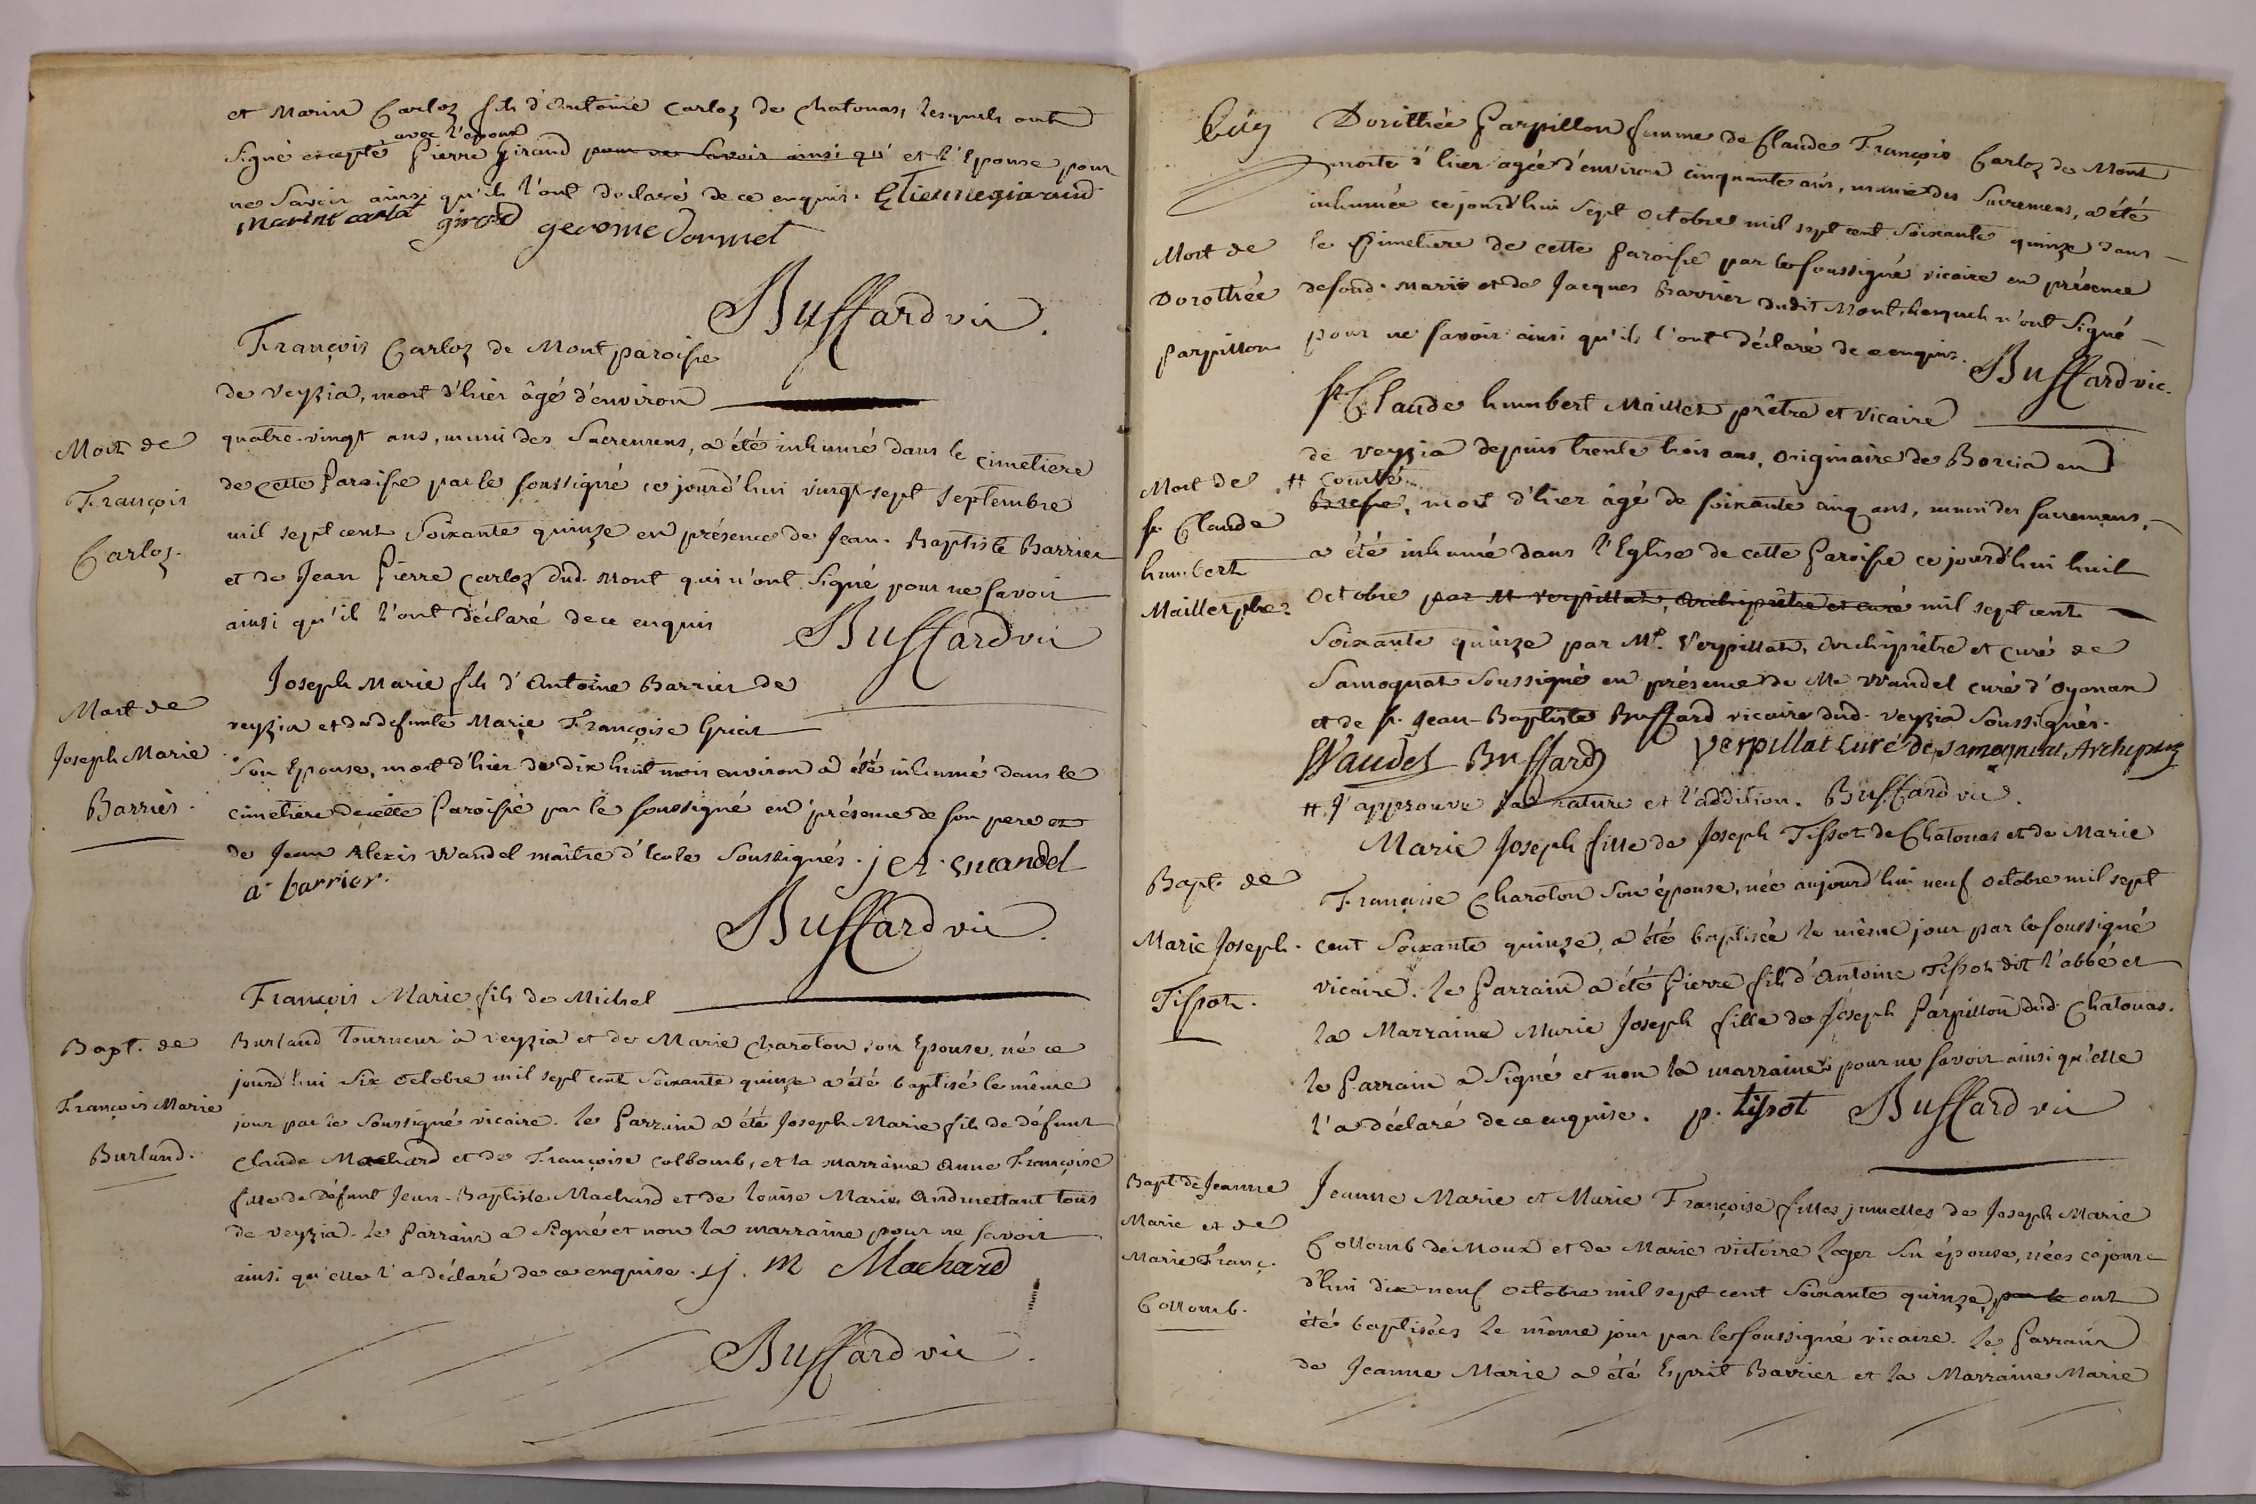 et Marin Carloz fils d'Antoine Carloz de Chatonas, lesquels ont
avec l'epoux
signé excepté Pierre Girand pour ne savoir ainsi qu' et l'Epouse pour
ne savoir ainsi qu'ils l'ont declaré de ce enquis. Etienne girand
Marin carla girod gerome Dormet
Buffard vic.
François Carloz de Mont paroisse
de veyzia, mort d'hier âgé d'environ
Mort de
François
Carloz.
quatre-vingt ans, muni des Sacremens, a été inhumé dans le cimetiere
de cette Paroisse par le soussigné ce jourd'hui vingt-sept septembre
mil sept cent Soixante quinze en présence de Jean-Baptiste Barrier
et de Jean Pierre Carloz dud. Mont qui n'ont signé pour ne savoir
ainsi qu'il l'ont déclaré de ce enquis
Buffard vic
Mort de
Joseph Marie
Barrier.
Joseph Marie fils d'Antoine Barrier de
veyzia et de defunte Marie Françoise
Son Epouse, mort d'hier de dix huit mois environ a été inhumé dans le
cimetiere de cette Paroisse par le soussigné en présence de son pere et
de Jean Alexis Wandel maître d'Ecole Soussignés. j A wandel
a. barrier.
Buffard vic.
Bapt. de
François Marie
Burland.
François Marie fils de Michel
Burland Tourneur à veyzia et de Marie Charoton son Epouse, né ce
jourd'hui six octobre mil sept cent soixante quinze a été baptisé le même
jour par le Soussigné vicaire. le Parrain a été Joseph Marie fils de défunt
Claude Machard et de Françoise Collomb, et la marraine Anne Françoise
fille de Défunt Jean-Baptiste Machard et de Louise Marie Andmettant tous
de veyzia. le Parrain a signé et non la marraine pour ne savoir
ainsi qu'elle l'a déclaré de ce enquise. j. m Machard
Buffard vic.
Mort de
Dorothée
Parpillon
Dorithée Parpillon femme de Claude François Carloz de Mont
morte d'hier agée d'environ cinquante ans, munie des Sacremens, a été
inhumée ce jourd'hui sept octobre mil sept cent Soixante quinze dans
le Cimetiere de cette Paroisse par le soussigné vicaire en présence
de son d. mari et de Jacques Barrier dudit Mont, lesquels n'ont Signé
pour ne savoir ainsi qu'ils l'ont déclaré de ce enquis.
Buffard vic.
Mort de
Sr. Claude
humbert
Maillet ptre.
Sr. Claude humbert Maillet prêtre et vicaire
de veyzia depuis trente trois ans, originaire de Borcia en
# Comté
Bresse, mort d'hier âgé de soixante cinq ans, muni des sacremens,
a été inhumé dans l'Eglise de cette Paroisse ce jourd'hui huit
Octobre par Mr verpillat, Archiprêtre et curé mil sept cent
soixante quinze par Mr. Verpillat, Archiprêtre et Curé de
Samognat Soussigné en présence de Mr Wandel curé d'Oyonax
et de Sr. Jean-Baptiste Buffard vicaire dud. veyzia Soussignés.
Wandel Buffard Verpillat Curé de samognat, Archiptre
# J'approuve la rature et l'addition. Buffard vic.
Bapt. de
Marie Joseph
Tissot.
Marie Joseph fille de Joseph Tissot de Chatonas et de Marie
Françoise Charoton son épouse, née aujourd'hui neuf octobre mil sept
cent Soixante quinze, a été baptisée le même jour par le soussigné
vicaire. le Parrain a été Pierre fils d'Antoine Tissot dit l'abbé et
la Marraine Marie Joseph fille de Joseph Parpillon dud. Chatonas.
le Parrain a Signé et non la marraine pour ne savoir ainsi qu'elle
l'a déclaré de ce enquise. p. tissot Buffard vic
Bapt. de Jeanne
Marie et de
Marie Franç.
Collomb.
Jeanne Marie et Marie Françoise filles jumelles de Joseph Marie
Collomb de Noux et de Marie victoire Leger Sn épouse, nées ce jour-
d'hui dix-neuf octobre mil sept cent Soixante quinze, par le ont
été baptisées le même jour par le soussigné vicaire. le Parrain
de Jeanne Marie a été Esprit Barrier et la Marraine Marie